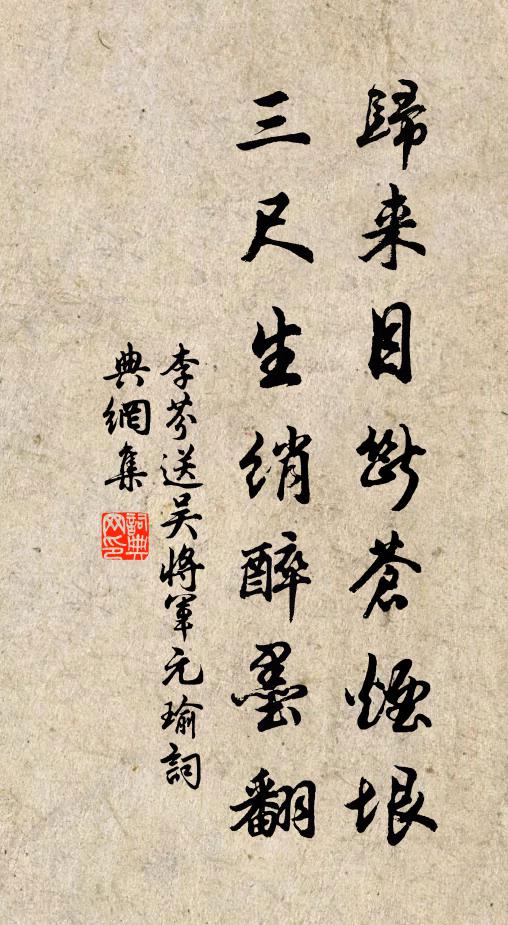 歸来目斷蒼煙垠
三尺生綃醉墨翻
李芬送吴將軍元瑜詞
典網集
詞典網印